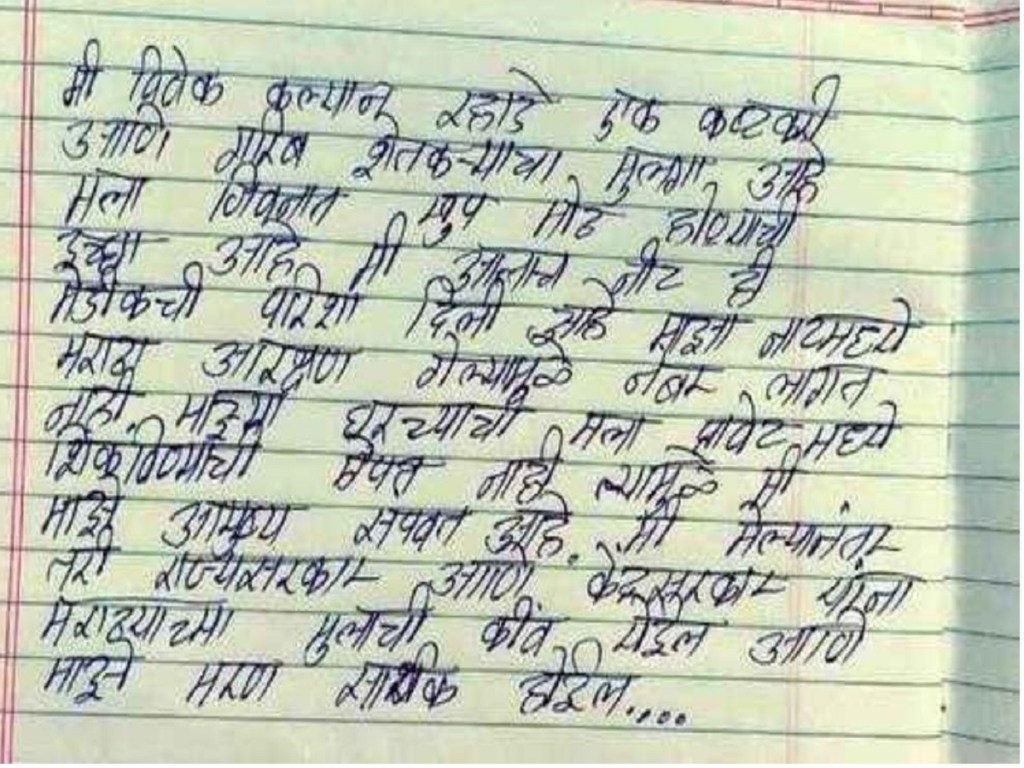 मी विवेक कल्यान रहाडे एक कष्टकरी
आणि गरिब शेतकऱ्याचा मुलगा आहे
मला जिवनात खुप मोठ होण्याची
इच्छा आहे मी आताच नीट ही
मेडीकची परिक्षा दिली आहे माझा नीटमध्ये
मराठा आरक्षण गेल्यामुळे नंबर लागत
नाही. माझ्या घरच्याची मला प्रावेट मध्ये
शिकविण्याची ऐपत नाही त्यामुळे मी
माझे आयुष्य सपवत आहे. मी मेल्यानंतर
तरी राज्यसरकार आणि केंद्रसरकार यांना
मराठ्याच्या मुलाची कीव येईल आणि
माझे मरण सार्थक होईल....